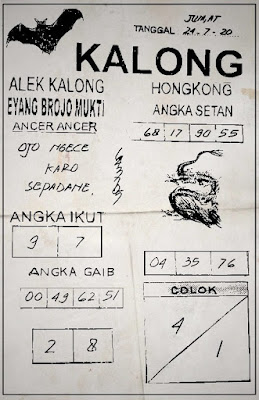 JUMAT
TANGGAL 24-7-20
KALONG
ALEK KALONG
EYANG BROJO MUKTI
ANCER ANCER
OJO NGECE
KARO
SEPADANE.
HONGKONG
ANGKA SETAN
68 17 90 55
ANGKA IKUT
9 7
ANGKA GAIB
00 49 62 51
2 8
04 35 76
COLOK
4
1